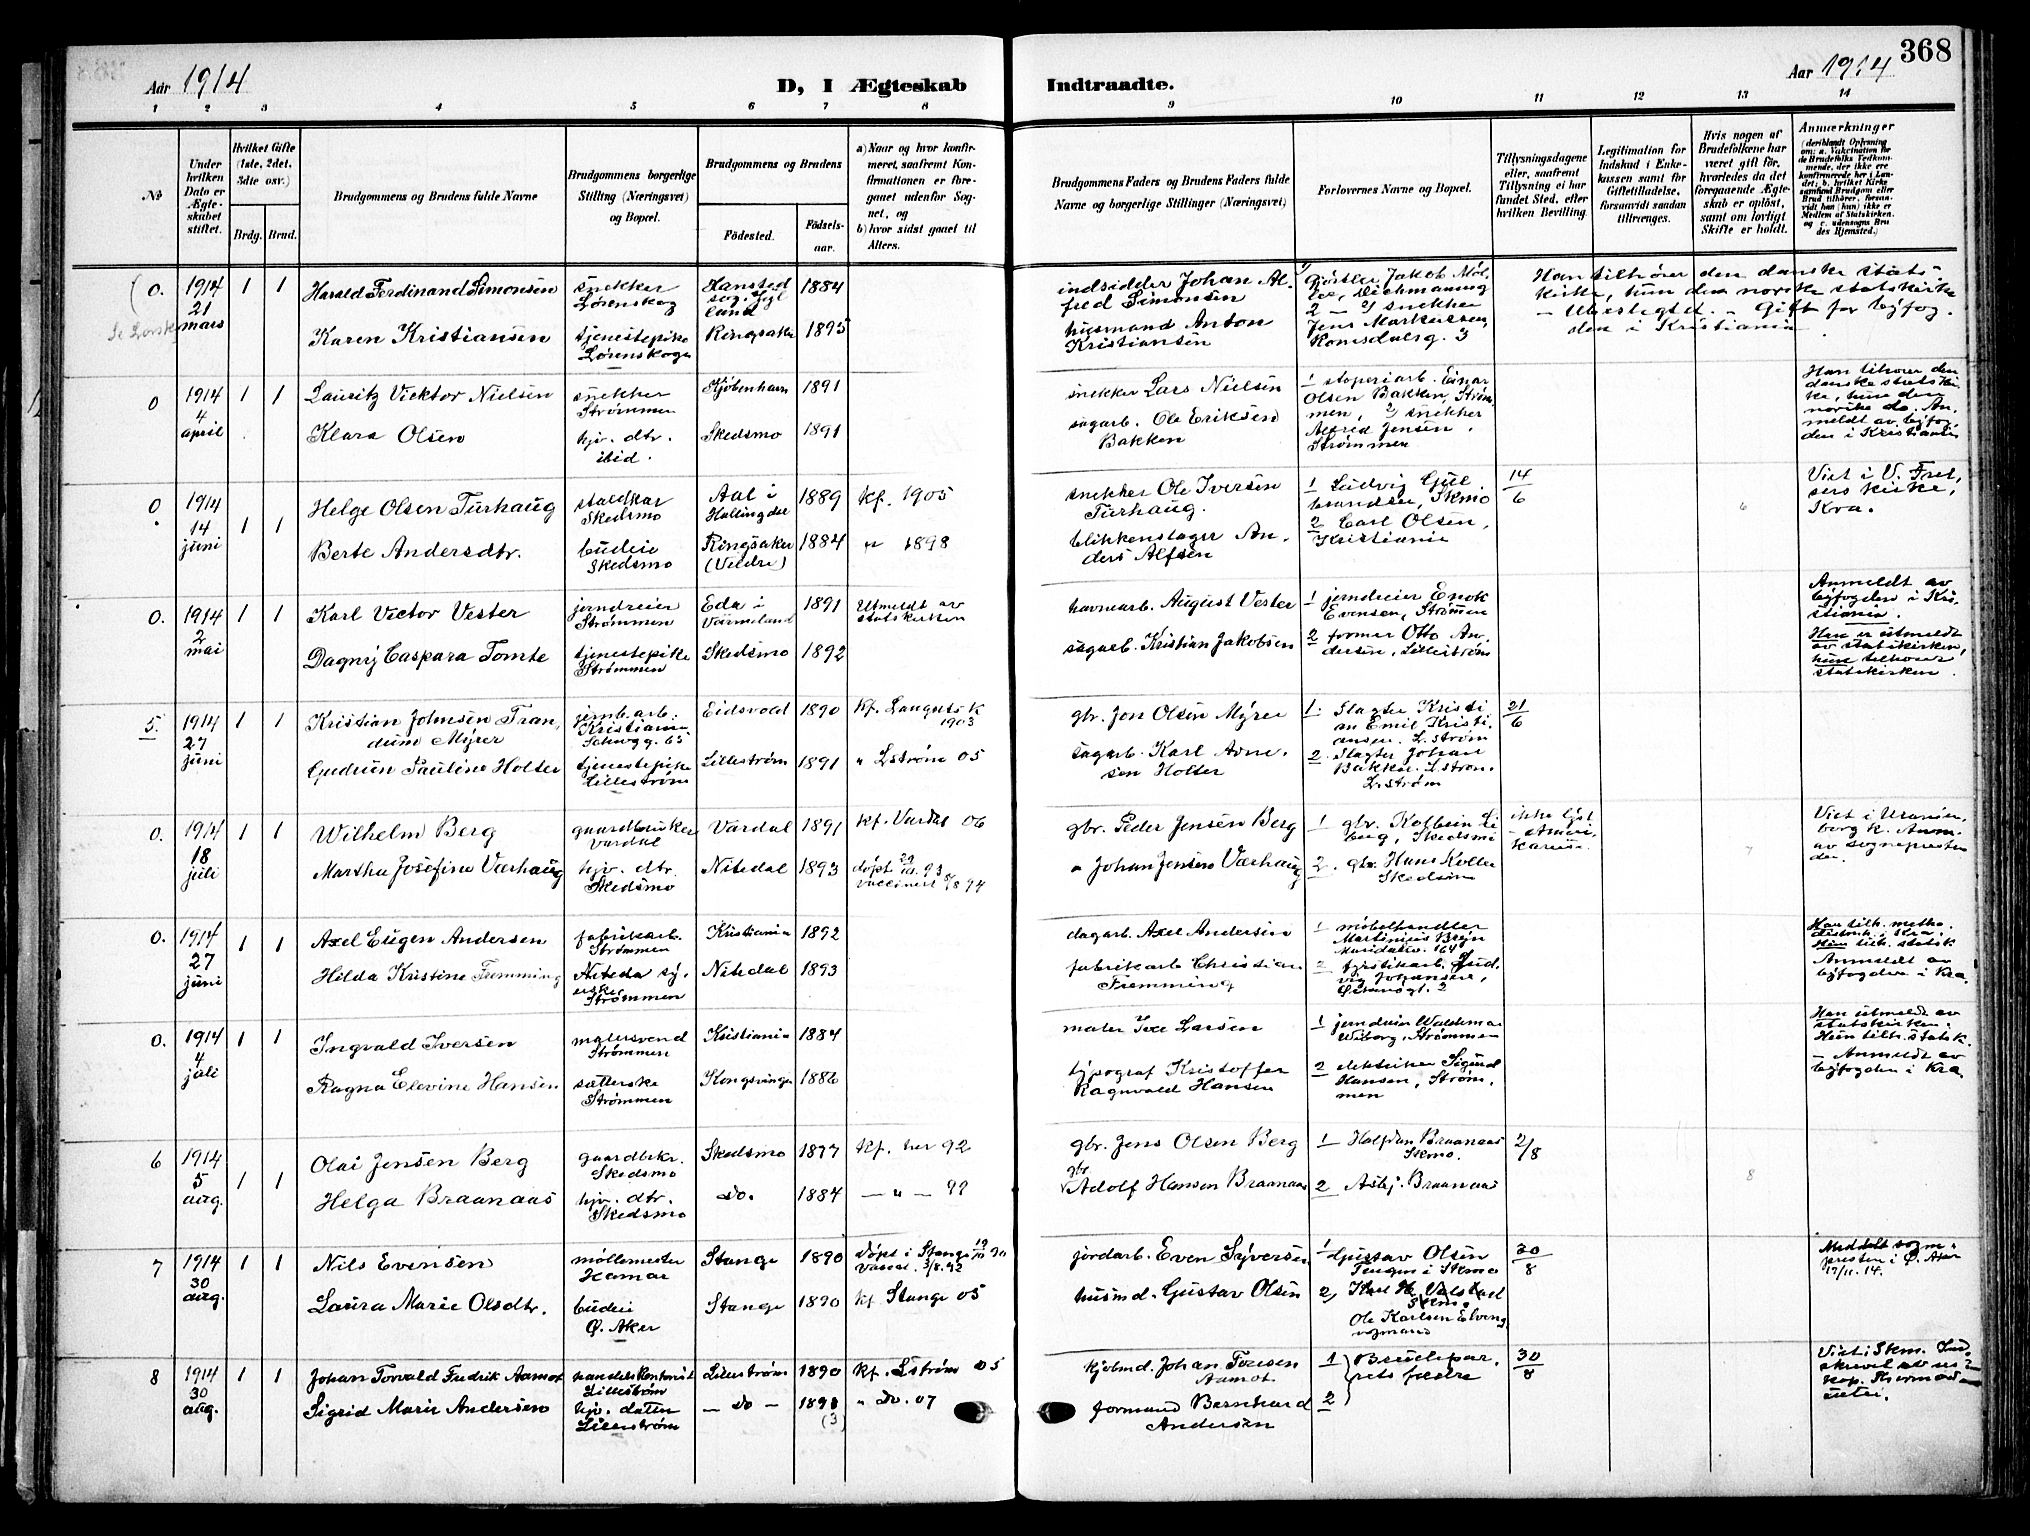 Aar 1914
D, I Ægteskab
Indtraadte.
Aar 1914
368
1 2 3 4 5 6 7 8 9 10 11 12 13 14
No
Under hvilken Dato er Ægteskabet stiftet.
Hvilket Gifte (1ste, 2det, 3die osv.)
Brdg. Brud.
Brudgommens og Brudens fulde Navne
Brudgommens borgerlige Stilling (Næringsvei) og Bopæl.
Brudgommens og Brudens
Fødested.
Fødselsaar.
a) Naar og hvor konfirmeret, saafremt Konfirmationen er foregaaet udenfor Sognet, og
b) hvor sidst gaaet til Alters.
Brudgommens Faders og Brudens Faders fulde Navne og borgerlige Stillinger (Næringsvei)
Forlovernes Navne og Bopæl.
Tillysningsdagene eller, saafremt Tillysning ei har fundet Sted, efter hvilken Bevilling.
Legitimation for Indskud i Enkekassen samt for Giftetilladelse, forsaavidt saadan tiltrænges.
Hvis nogen af Brudefolkene har været gift før, hvorledes da det foregaaende Ægteskab er opløst, samt om lovligt Skifte er holdt.
Anmerkninger
(deriblandt Oplysning om: a. Vaccination for de Brudefolks Vedkommende, der ikke ere konfirmerede her i Landet; b. hvilket Kirkesamfund Brudgom eller Brud tilhører, forsaavidt han (hun) ikke er Medlem af Statskirken, og c. udensogns Brudes Hjemsted.)
0. 1914 21 mars 1 1
Harald Ferdinand Simonsen
snekker Lørenskog
Hansted sog. Jylland 1884
indsidder Johan Alfred Simonsen
Jakob
2 snekker Jens Markussen, Romsdalsg. 3
Han tilhører den danske statskirke, hun den norske statskirke
- Ubeslegtet. - Gift for byfogden i Kristiania
Karen Kristiansen
tjenestepike Lørenskogen
Ringsaker 1895
husmand Anton Kristiansen
0 1914 4 april 1 1
Lauritz Vicktor Nielsen
snekker Strømmen
Kjøbenhavn 1891
snekker Lars Nielsen
1 støperiarb. Einar Olsen Bakken, Strømmen, 2) snekker Alfred Jensen, Strømmen
Han tilhører den danske statskirke, hun den norske do. Anmeldt av byfogden i Kristiania
Klara Olsen
hjv. dtr. ibid.
Skedsmo 1891
sagarb. Ole Eriksen Bakken
0 1914 14 juni 1 1
Helge Olsen Turhaug
staldkar Skedsmo
Aal i Hallingdal 1889
kf. 1905
snekker Ole Iversen Turhaug.
1 Ludvig Gulbrandsen, Skmo
2 Carl Olsen, Kristiania
14/6
6
Viet i V. Frelsers kirke, Kra.
Berte Andersdtr.
budeie Skedsmo
Ringsaker (Veldre) 1884
" 1898
blikkenslager Anders Alfsen
0. 1914 2 mai 1 1
Karl Victor Vester
jerndreier Strømmen
Eda i Värmeland 1891
Utmeldt av statskirken
havnearb. August Vester
1 jerndreier Enok Evensen, Strømmen
2 former Otto Andersen, Lillestrøm
Anmeldt av byfogden i Kristiania.
Han er utmeldt av statskirken, hun tilhører statskirken.
Dagny Caspara Tomte
tjenestepike Strømmen
Skedsmo 1892
sagarb. Kristian Jakobsen
5. 1914 27 juni 1 1
Kristian Johnsen Trandum Myrer
jernb.arb. Kristiania Schwgg. 65
Eidsvold 1890
kf. Langets k 1903
gbr. Jon Olsen Myrer
1. Slagter Kristian Emil Kristiansen. L.strøm
2. Slagter Johan Bakken. L.strøm.
L.strøm
21/6
Gudrun Pauline Holter
tjenestepike Lillestrøm
Lillestrøm 1891
" Lstrøm 05
sagarb. Karl Arnesen Holter
0. 1914 18 juli 1 1
Wilhelm Berg
gaardbruker Vardal
Vardal 1891
kf. Vardal 06
gbr. Peder Jensen Berg
1 gbr. Kolbein Liberg, Skedsmo
2. gbr. Hans Koller Skedsmo
ikke lyst
7
Martha Josefine Værhaug
hjv. dtr. Skedsmo
Nitedal 1893
døpt 29/10. 93 vaccinert 8/8 94
" Johan Jensen Værhaug
0. 1914 27 juni 1 1
Axel Eugen Andersen
fabrikarb. Strømmen
Kristiania 1892
dagarb. Axel Andersen
1 møbelhandler Martinius Bryn 164
2 Ludvig Johansen,
Han tilh. methodistmk. i Kra.
Hun tilh. statsk.
Anmeldt av byfogden i Kra.
Hilda Kristine Flemming
Strømmen
Nitedal 1893
fabrikarb Christian Flemming
0. 1914 4 juli 1 1
Ingvald Iversen
malersvend Strømmen
Kristiania 1884
maler Larsen
1 jerndreier Waldemar Wiborg, Strømmen
2 elektriker Sigurd Hansen, Strømmen
Han utmeldt av statskirken.
Hun tilh. statsk.
- Anmeldt av byfogden i Kra
Ragna Elevine Hansen
sætterske Strømmen
Kongsvinger 1886
typograf Kristoffer Ragnvald Hansen
6 1914 5 aug. 1 1
Olai Jensen Berg
gaardbrkr. Skedsmo
Skedsmo 1877
kf. her 92
gbr. Jens Olsen Berg
1 Halfdan Braanaas Skmo.
2/8
8
Helga Braanaas
hjv. dtr. Skedsmo
Do. 1884
— " — 99
gbr Adolf Hansen Braanaas
2 Asbj. Braanaas
7 1914 30 aug. 1 1
Nils Evensen
møllemester Hamar
Stange 1890
døpt i Stange 19/10 90 vaccal. 3/8. 92
jordarb. Even Syversen
1 Gustav Olsen i Skmo
2, Karl H. Valstad Skmo.
Ole Karlsen Elveng
30/8
Meddelt sognepresten i Ø. Aker 17/11. 14.
Laura Marie Olsdtr.
budeie Ø. Aker
Stange 1890
kf. Stange 05
husmd. Gustav Olsen
8 1914 30 aug. 1 1
Johan Torvald Fredrik Aamot
handelskontorist Lillestrøm
Lillestrøm 1890
kf. Lstrøm 05
kjøbmd. Johan Toresen Aamot
1 2 } Brudeparrets fædre
30/8
Viet i Skm.
Sigrid Marie Andersen
hjv. datter Lillestrøm
— Do — 1893 (3)
" Do. 07
formand Bernhard Andersen